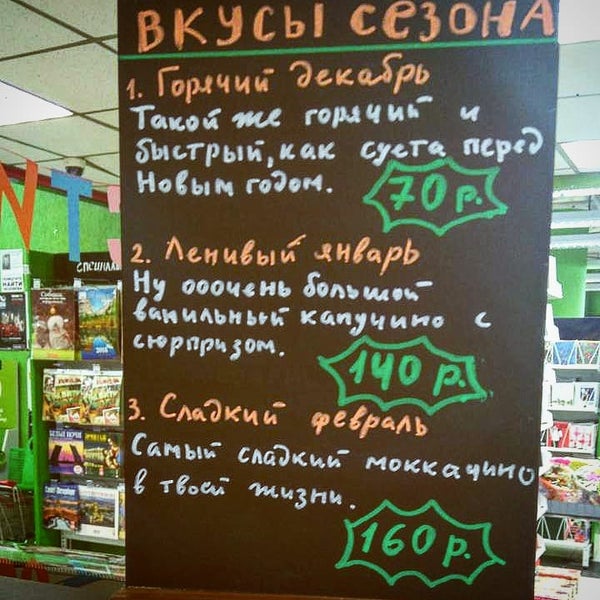 ВКУСЫ СЕЗОНА
1. Горячий декабрь
Такой же горячий и
быстрый, как суета перед
Новым годом.
70 р.
2. Ленивый январь
Ну ооочень большой
ванильный капучино с
сюрпризом.
140 р.
3. Сладкий февраль
Самый сладкий моккачино
в твоей жизни.
160 р.
NT